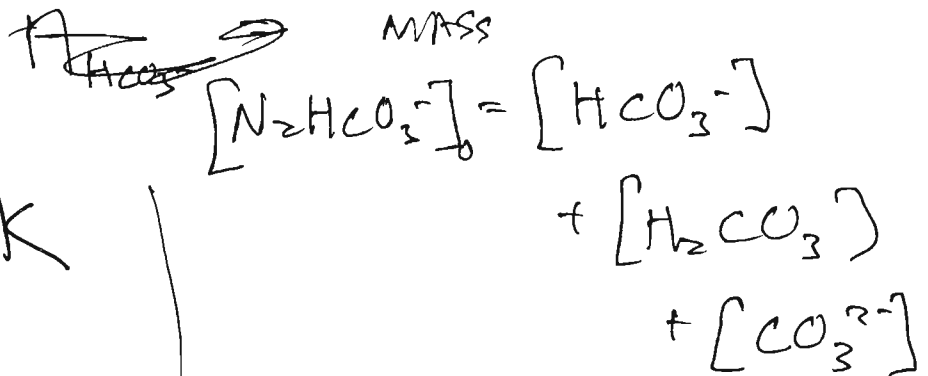 MASS
[NaHCO₃⁻]₀ = [HCO₃⁻]
K
+ [H₂CO₃)
+ [CO₃²⁻]